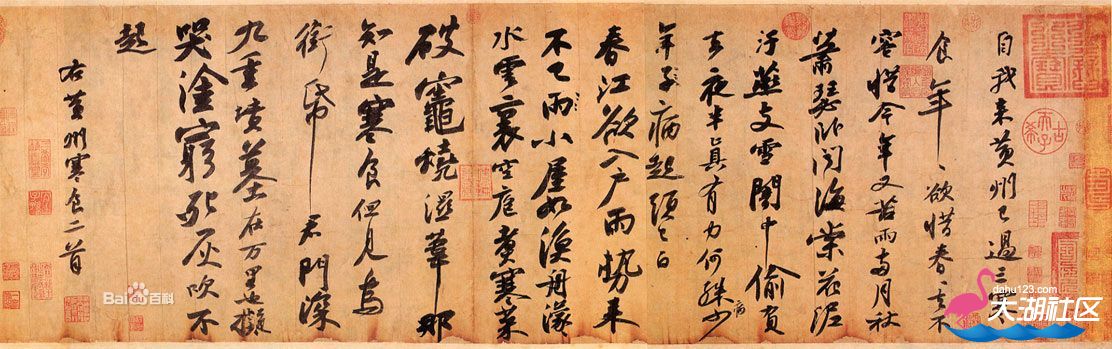 自我来黄州已過三寒
食年〻欲惜春〻去不
容惜今年又苦雨兩月秋
蕭瑟卧聞海棠花泥
汙燕支雪闇中偷負
去夜半真有力何殊少
病
年子病起頭已白
春江欲入户雨勢来
不已雨小屋如漁舟濛〻
水雲裏空庖煮寒菜
破竈燒濕葦那
知是寒食但見烏
銜帋君門深
九重墳墓在万里也擬
哭塗窮死灰吹不
起
右黄州寒食二首
古希天子
Bai百科
dahu123.com
大湖社区